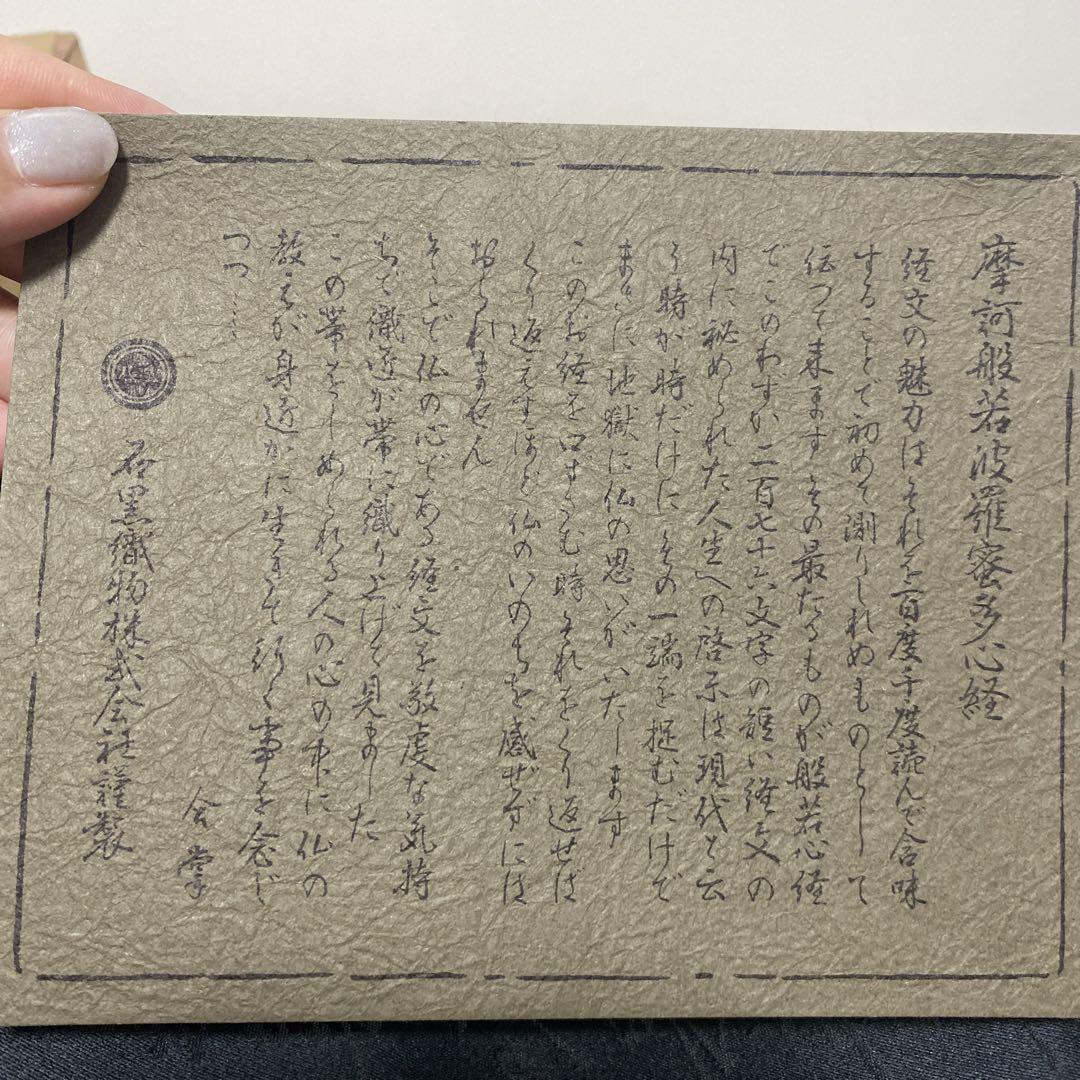 摩訶般若波羅蜜多心経
経文の魅力はそれを百度千度読んで含味
することで初めて測りしれぬものとして
伝つて来ます その最たるものが般若心経
でこのわずか二百七十六文字の短い経文の
内に秘められた人生への啓示は現代と云
う時が時だけに その一端を掟むだけで
まさに地獄に仏の思いがいたします
このお経を口ずさむ時それをくり返せば
くり返えすほど仏のいのちを感ぜずには
おられません
そこで仏の心である経文を敬虔な気持
ちで織匠が帯に織り上げて見ました
この帯をしめられる人の心の中に仏の
教えが身近かに生きて行く事を念じ
つつ……
合掌
石黒織物株式会社謹製